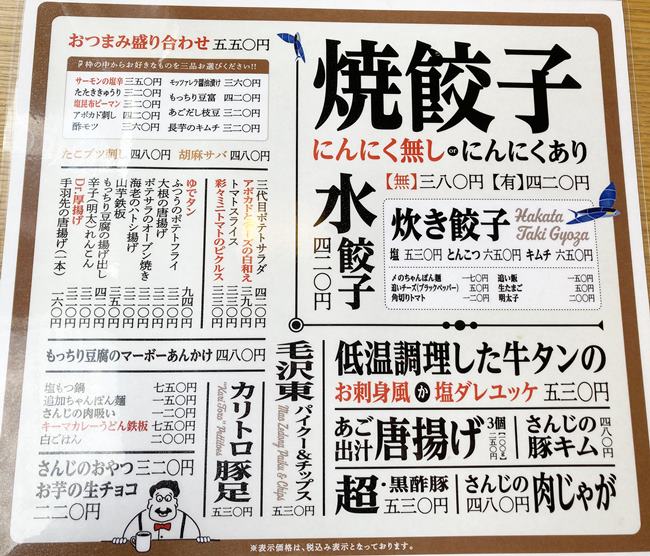 おつまみ盛り合わせ 五五〇円
枠の中からお好きなものを三品お選びください!!
サーモンの塩辛 三五〇円 モッツァレラ醤油漬け 三六〇円
たたききゅうり 三二〇円 もっちり豆富 四二〇円
塩昆布ピーマン 三二〇円 あごだし枝豆 三二〇円
アボカド刺し 四二〇円 長芋のキムチ 三二〇円
酢モツ 三六〇円
たこブツ刺し 四八〇円 胡麻サバ 四八〇円
三代目ポテトサラダ 四二〇円
アボカドとチーズの白和え
トマトスライス
彩々ミニトマトのピクルス
ゆでタン
ふつうのポテトフライ
大根の唐揚げ
ポテサラのオーブン焼き
海老のハトシ揚げ
山芋鉄板
もっちり豆腐の揚げ出し
辛子(明太)れんこん
Dr.厚揚げ
手羽先の唐揚げ(一本) 一六〇円
もっちり豆腐のマーボーあんかけ 四八〇円
塩もつ鍋 七五〇円
追加ちゃんぽん麺 一五〇円
さんじの肉吸い 一二〇円
キーマカレーうどん鉄板 七五〇円
白ごはん 二〇〇円
さんじのおやつ 三二〇円
お芋の生チョコ
二二〇円
カリトロ豚足
"Kari Toro" Pettitoes
五三〇円
毛沢東パイクー&チップス
Mao Zedong Paiku & Chips
五三〇円
焼餃子
にんにく無し or にんにくあり
【無】三八〇円【有】四二〇円
水餃子
四二〇円
炊き餃子
Hakata
Taki Gyoza
塩 五三〇円 とんこつ 六五〇円 キムチ 六五〇円
〆のちゃんぽん麺 一七〇円 追い飯 一五〇円
追いチーズ(ブラックペッパー) 五〇円 生たまご 五〇円
角切りトマト 一二〇円 明太子 二〇〇円
低温調理した牛タンの
お刺身風か塩ダレユッケ 五三〇円
あご出汁唐揚げ 3個
さんじの豚キム 四八〇円
超・黒酢豚
五三〇円
さんじの肉じゃが
四八〇円
※表示価格は、税込み表示となっております。